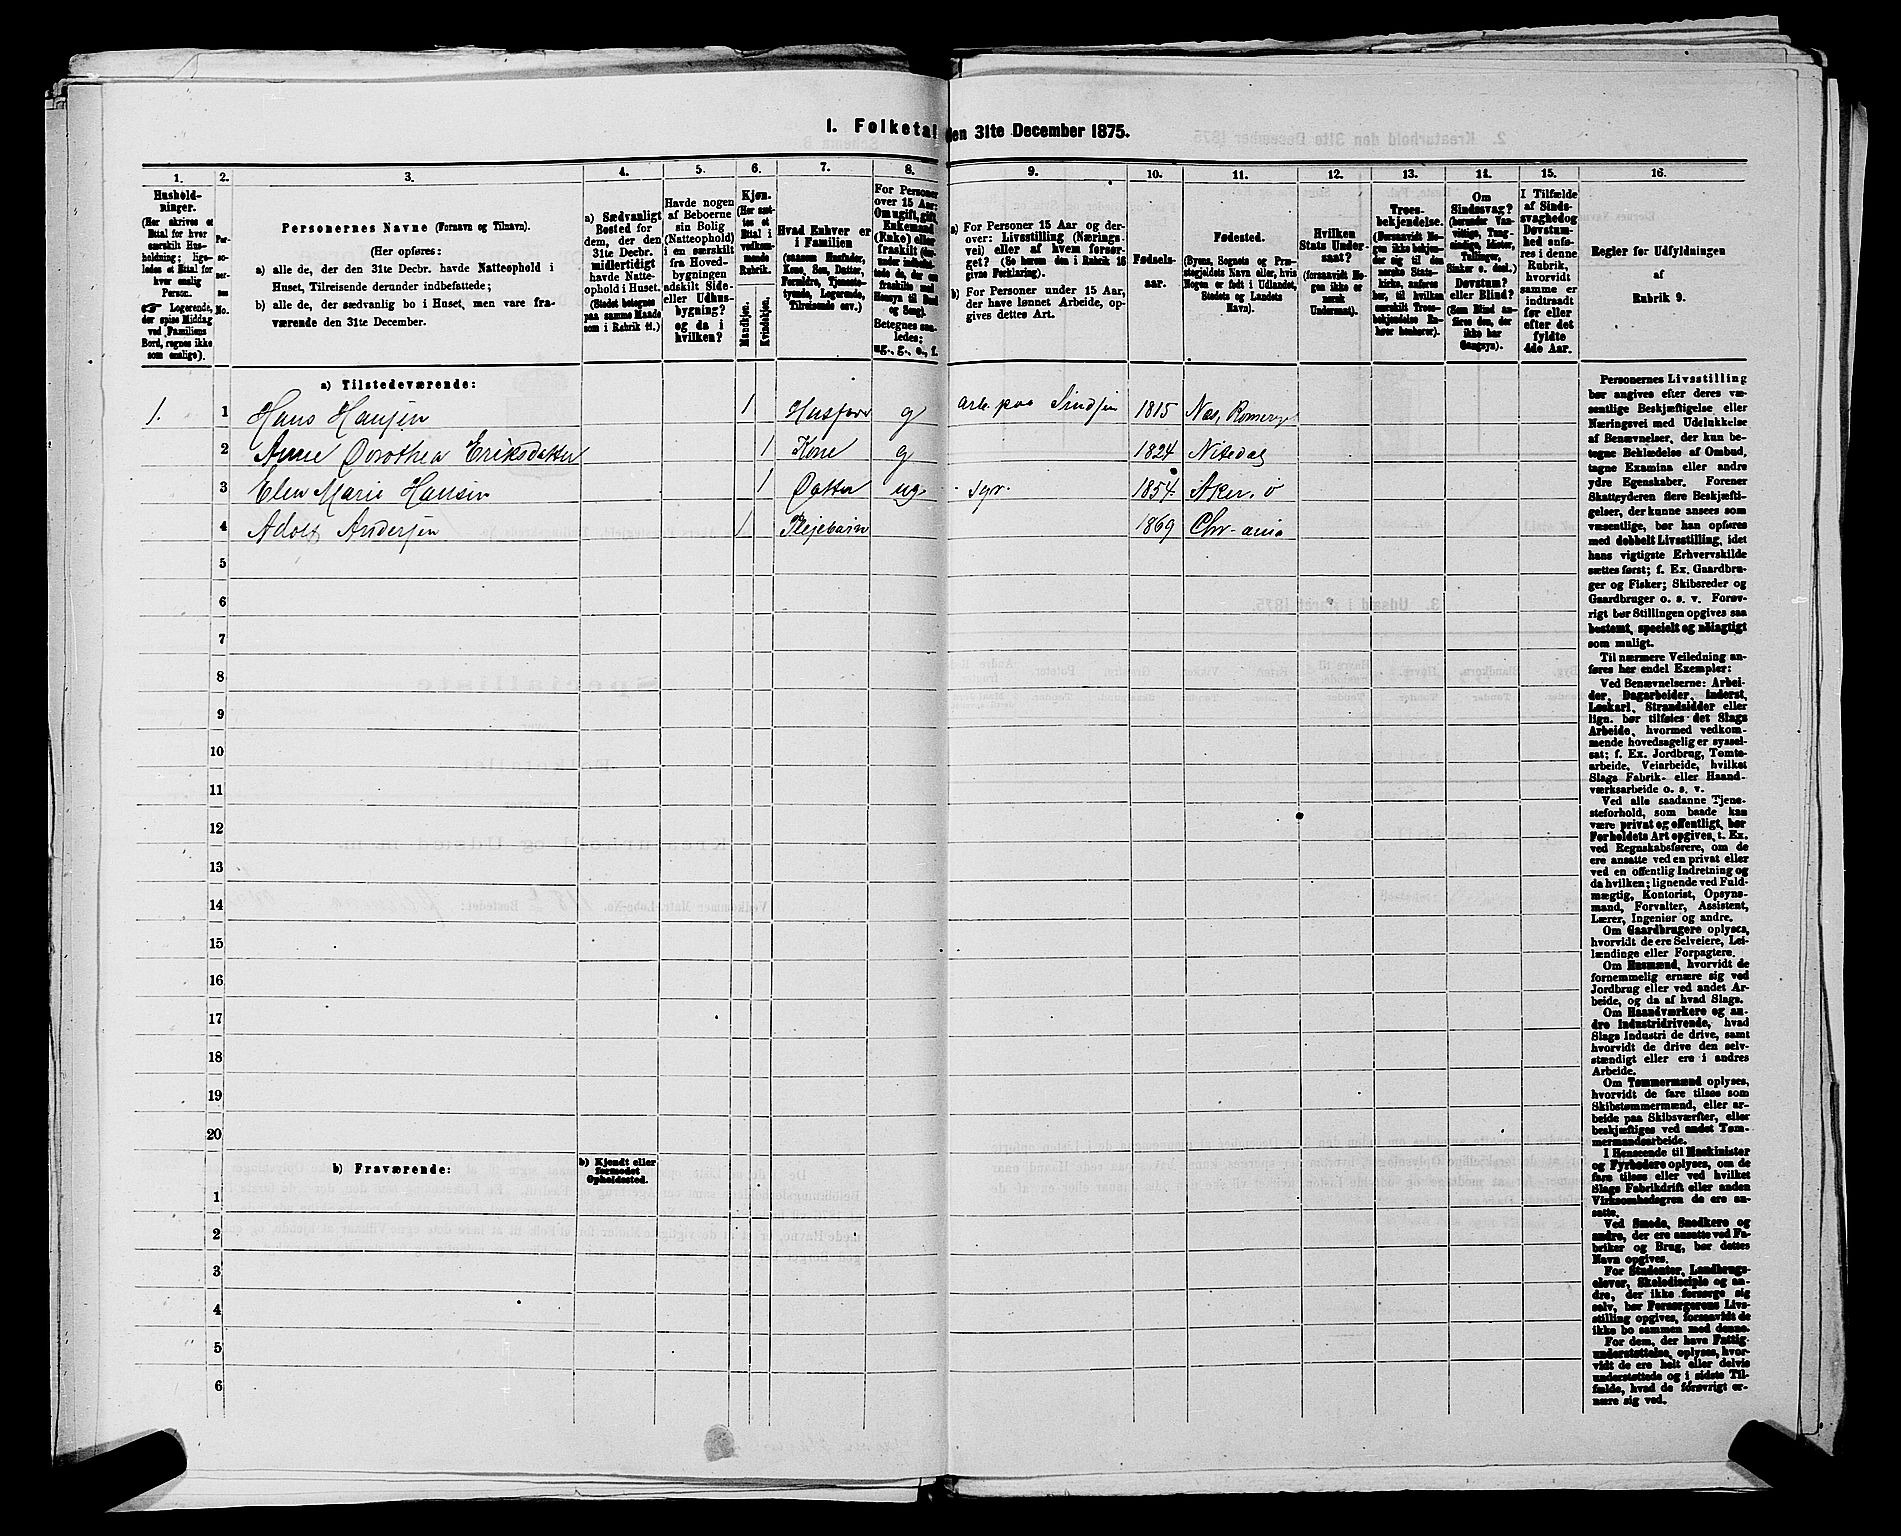 1. Folketal den 31te December 1875.
1. 2. 3. 4. 5. 6. 7. 8. 9. 10. 11. 12. 13. 14. 15. 16.
Hushold-
ninger.
(Her skrives et
Ettal for hver
særskilt Hus-
holdning; lige-
ledes et Ettal for
hver enslig
Person.
☞ Logerende,
der spise Middag
ved Familiens
Bord, regnes ikke
som enslige).
Per-
so-
ner-
nes
No.
Personernes Navne (Fornavn og Tilnavn).
(Her opføres:
a) alle de, der den 31te Decbr. havde Natteophold i
Huset, Tilreisende derunder indbefattede;
b) alle de, der sædvanlig bo i Huset, men vare fra-
værende den 31te December.
a) Sædvanligt
Bosted for
dem, der den
31te Decbr.
midlertidigt
havde Natte-
ophold i Huset.
(Stedet betegnes
paa samme Maade
som i Rubrik 11.)
Havde nogen
af Beboerne
sin Bolig
(Natteophold)
i en særskilt
fra Hoved-
bygningen
adskilt Side-
eller Udhus-
bygning?
og da i
hvilken?
Kjøn.
(Her sæt-
tes et
Ettal i
vedkom-
mende
Rubrik.
Mandkjøn.
Kvindekjøn.
Hvad Enhver er
i Familien
(saasom Husfader,
Kone, Søn, Datter,
Forældre, Tjeneste-
tyende, Logerende,
Tilreisende osv.)
For Personer
over 15 Aar:
Om ugift, gift,
Enkemand
(Enke) eller
fraskilt
Betegnes saa-
ledes:
ug., g., e., f.
a) For Personer 15 Aar og der-
over: Livsstilling (Nærings-
vei) eller af hvem forsør-
get? (Se herom den i Rubrik 16
givne Forklaring).
b) For Personer under 15 Aar,
der have lønnet Arbeide, op-
gives dettes Art.
Fødsels-
aar.
Fødested.
(Byens, Sognets og Præ-
stegjeldets Navn eller, hvis
Nogen er født i Udlandet,
Stedets og Landets
Navn).
Hvilken
Stats Under-
saat?
(forsaavidt No-
gen ikke er
norsk
Undersaat).
Troes-
bekjendelse.
(Forsaavidt No-
gen ikke bekjen-
der sig til den
norske Stats-
kirke, anføres
her, til hvilken
særskilt Troes-
bekjendelse En-
hver henhører).
Om
Sindssvag?
(herunder Van-
vittige, Tung-
sindige, Idioter,
Tullinger,
Sinker o. desl.)
Døvstum?
eller Blind?
(Som Blind an-
føres den, der
ikke har
Gangsyn).
I Tilfælde
af Sinds-
svaghed og
Døvstum-
hed anfø-
res i denne
Rubrik,
hvorvidt
samme er
indtraadt
før eller
efter det
fyldte
4de Aar.
Regler for Udfyldningen
af
Rubrik 9.
a) Tilstedeværende:
1. 1 Hans Hansen 1 Husfader g arb. paa 1815 Nes, Romerige
2 Anne Dorothea Eriksdatter 1 Kone g 1824 Nitedal
3 Elen Marie Hansen 1 Datter ug. syr. 1854. Aker. ø
4 Adolf Andersen 1 Plejebarn 1869 Chr-ania
5
6
7
8
9
10
11
12
13
14
15
16
17
18
19
20
b) Fraværende: b) Kjendt eller
formodet
Opholdssted.
1
2
3
4
5
6
Personernes Livsstilling
bør angives efter deres væ-
sentlige Beskjæftigelse eller
Næringsvei med Udelukkelse
af Benævnelser, der kun be-
tegne Beklædelse af Ombud,
tagne Examina eller andre
ydre Egenskaber. Forener
Skatteyderen flere Beskjæfti-
gelser, der kunne ansees som
væsentlige, bør han opføres
med dobbelt Livsstilling, idet
hans vigtigste Erhvervskilde
sættes først; f. Ex. Gaardbru-
ger og Fisker; Skibsreder og
Gaardbruger o. s. v. Forøv-
rigt bør Stillingen opgives saa
bestemt, specielt og nøiagtigt
som muligt.
Til nærmere Veiledning an-
føres her endel Exempler:
Ved Benævnelserne: Arbei-
der, Dagarbeider, Inderst,
Løskarl, Strandsidder eller
lign. bør tilføies det Slags
Arbeide, hvormed vedkom-
mende hovedsagelig er syssel-
sat; f. Ex. Jordbrug, Tømte-
arbeide, Veiarbeide, hvilket
Slags Fabrik- eller Haand-
værksarbeide o. s. v.
Ved alle saadanne Tjene-
steforhold, som baade kan
være privat og offentligt, bør
Forholdets Art opgives, t. Ex.
ved Regnskabsførere, om de
ere ansatte ved en privat eller
ved en offentlig Indretning og
da hvilken; lignende ved Fuld-
mægtig, Kontorist, Opsyns-
mand, Forvalter, Assistent,
Lærer, Ingeniør og andre.
Om Gaardbrugere oplyses,
hvorvidt de ere Selveiere, Lei-
lændinge eller Forpagtere.
Om Husmænd, hvorvidt de
fornemmelig ernære sig ved
Jordbrug eller ved andet Ar-
beide, og da af hvad Slags.
Om Haandværkere og an-
dre Industridrivende, hvad
Slags Industri de drive, samt
hvorvidt de drive den selv-
stændigt eller ere i andres
Arbeide.
Om Tømmermænd oplyses,
hvorvidt de fare tilsøs som
Skibstømmermænd, eller ar-
beide paa Skibsværfter, eller
beskjæftiges ved andet Tøm-
mermandsarbeide.
I Henseende til Maskinister
og Fyrbødere oplyses, om de
fare tilsøs eller ved hvilket
Slags Fabrikdrift eller anden
Virksomhedsgren de ere an-
satte.
Ved Smede, Snedkere og
andre, der ere ansatte ved Fa-
briker og Brug, bør dettes
Navn opgives.
For Studenter, Landbrugs-
elever, Skoledisciple og an-
dre, der ikke forsørge sig
selv, bør Forsørgerens Livs-
stilling opgives, forsaavidt de
ikke bo sammen med denne.
For dem, der have Fattig-
understøttelse, oplyses, hvor-
vidt de ere helt eller delvis
understøttede og i sidste Til-
fælde, hvad de forøvrigt er-
nære sig ved.